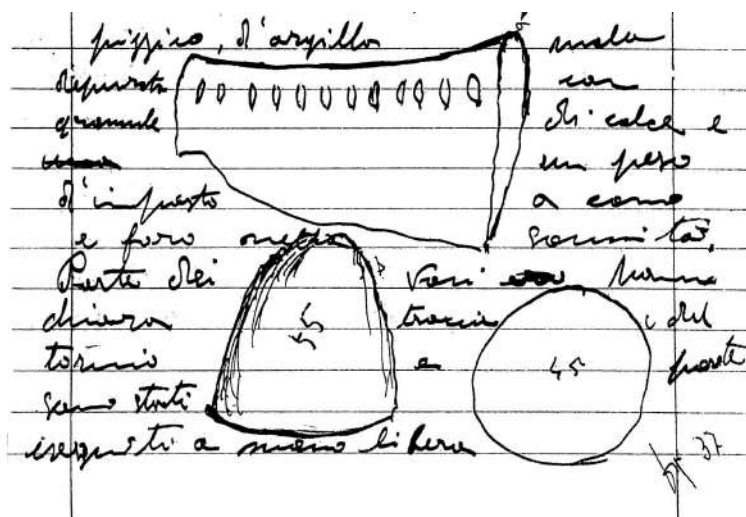 pizzico, d'argilla mala
depurata con
granuli di calce e
un peso
d'impasto a cono
e foro nella sommità.
Parte dei vasi hanno
chiara traccia del
55
45
tornio e parte
sono stati
eseguiti a mano libera
37